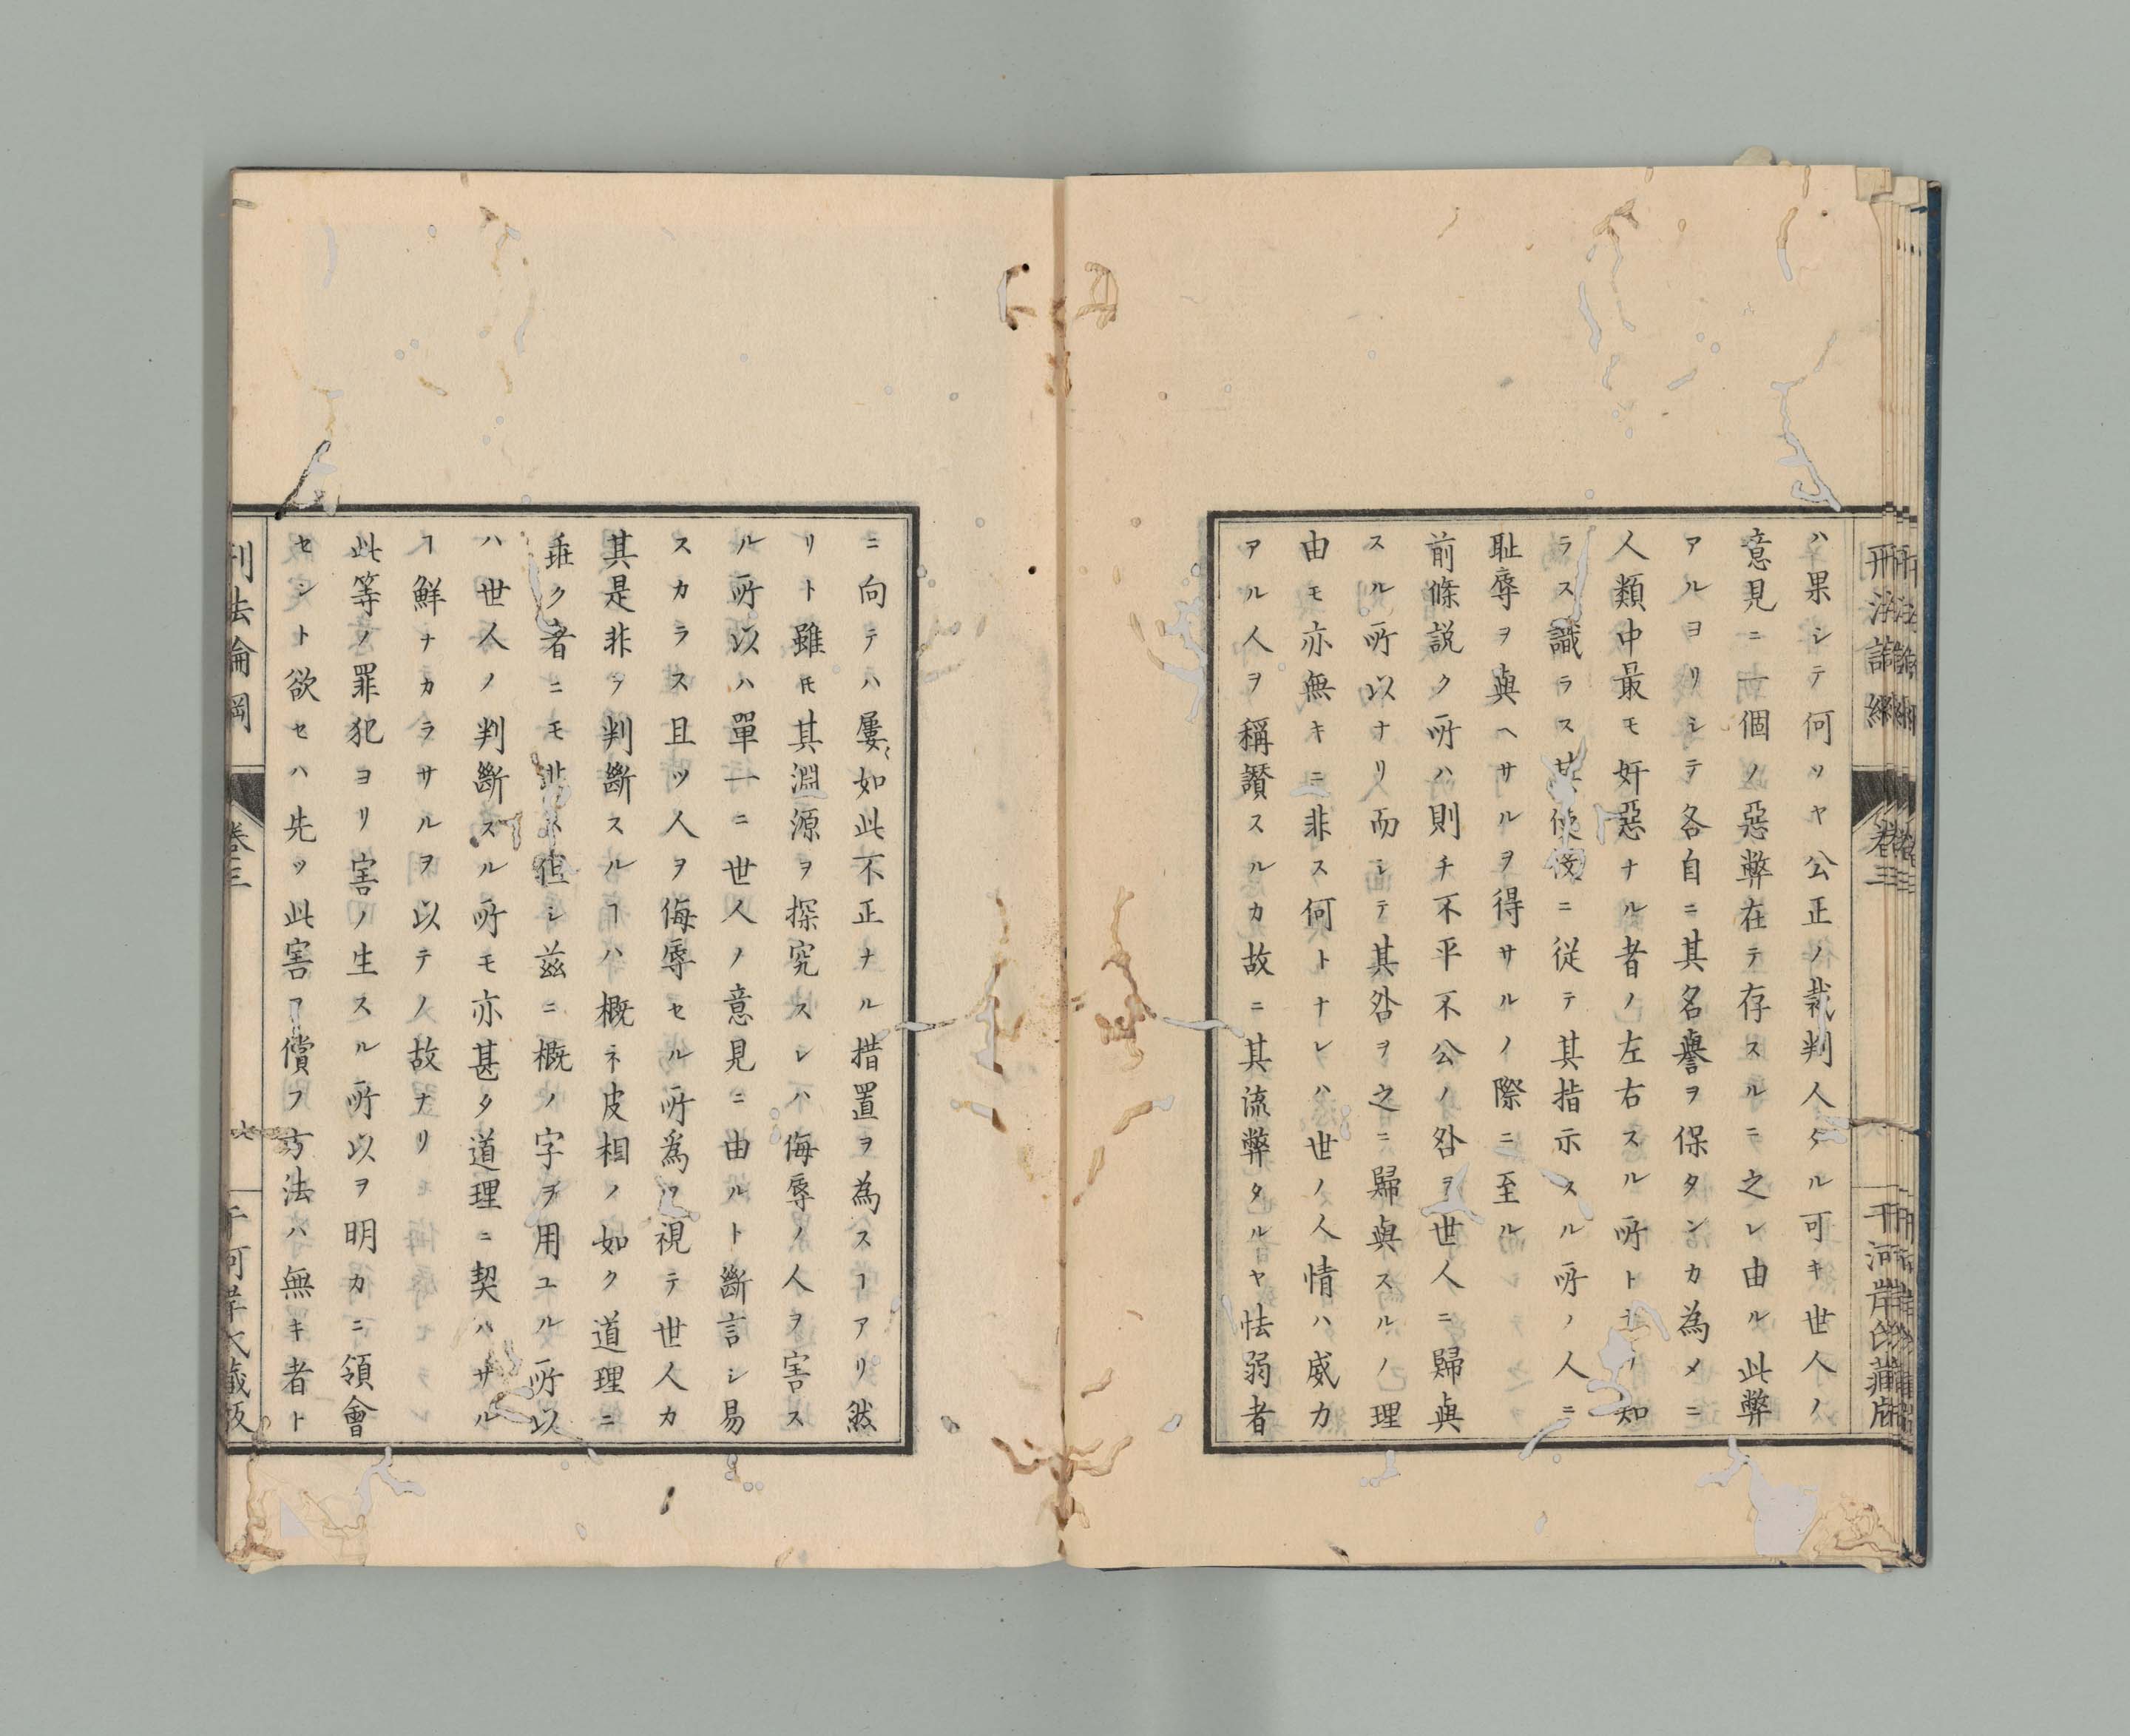 ハ果シテ何ソヤ公正ノ裁判人タル可キ世人ノ
意見ニ一個ノ惡弊在テ存スルニ之レ由ル此弊
アルヨリシテ各自ニ其名譽ヲ保タンカ為メニ
人類中最モ奸惡ナル者ノ左右スル所ト 知
ラス識ラス其使役ニ従テ其指示スル所ノ人ニ
耻辱ヲ與ヘサルヲ得サルノ際ニ至ル
前條説ク所ハ則チ不平不公ノ咎ヲ世人ニ歸與
スル所以ナリ而シテ其咎ヲ之ニ歸與スルノ理
由モ亦無キニ非ス何トナレハ世ノ人情ハ威力
アル人ヲ稱讃スルカ故ニ其流弊タルヤ怯弱者
ニ向テハ屢〻如此不正ナル措置ヲ為スヿアリ然
リト雖モ其淵源ヲ探究スレハ侮辱ノ人ヲ害ス
ル所以ハ單一ニ世人ノ意見ニ由ルト斷言シ易
スカラス且ツ人ヲ侮辱セル所為ハ視テ世人カ
其是非ヲ判斷スルヿハ概ネ皮相ノ如ク道理ニ
乖ク者ニモ非ス但シ茲ニ概ノ字ヲ用ユル所以
ハ世人ノ判斷スル所モ亦甚タ道理ニ契ハサル
ヿ鮮ナカラサルヲ以テノ故ナリ
此等ノ罪犯ヨリ害ノ生スル所以ヲ明カニ領會
セシト欲セハ先ッ此害ヲ償フ方法ハ無キ者ト
刑法論綱
卷三
七
干河岸氏藏版